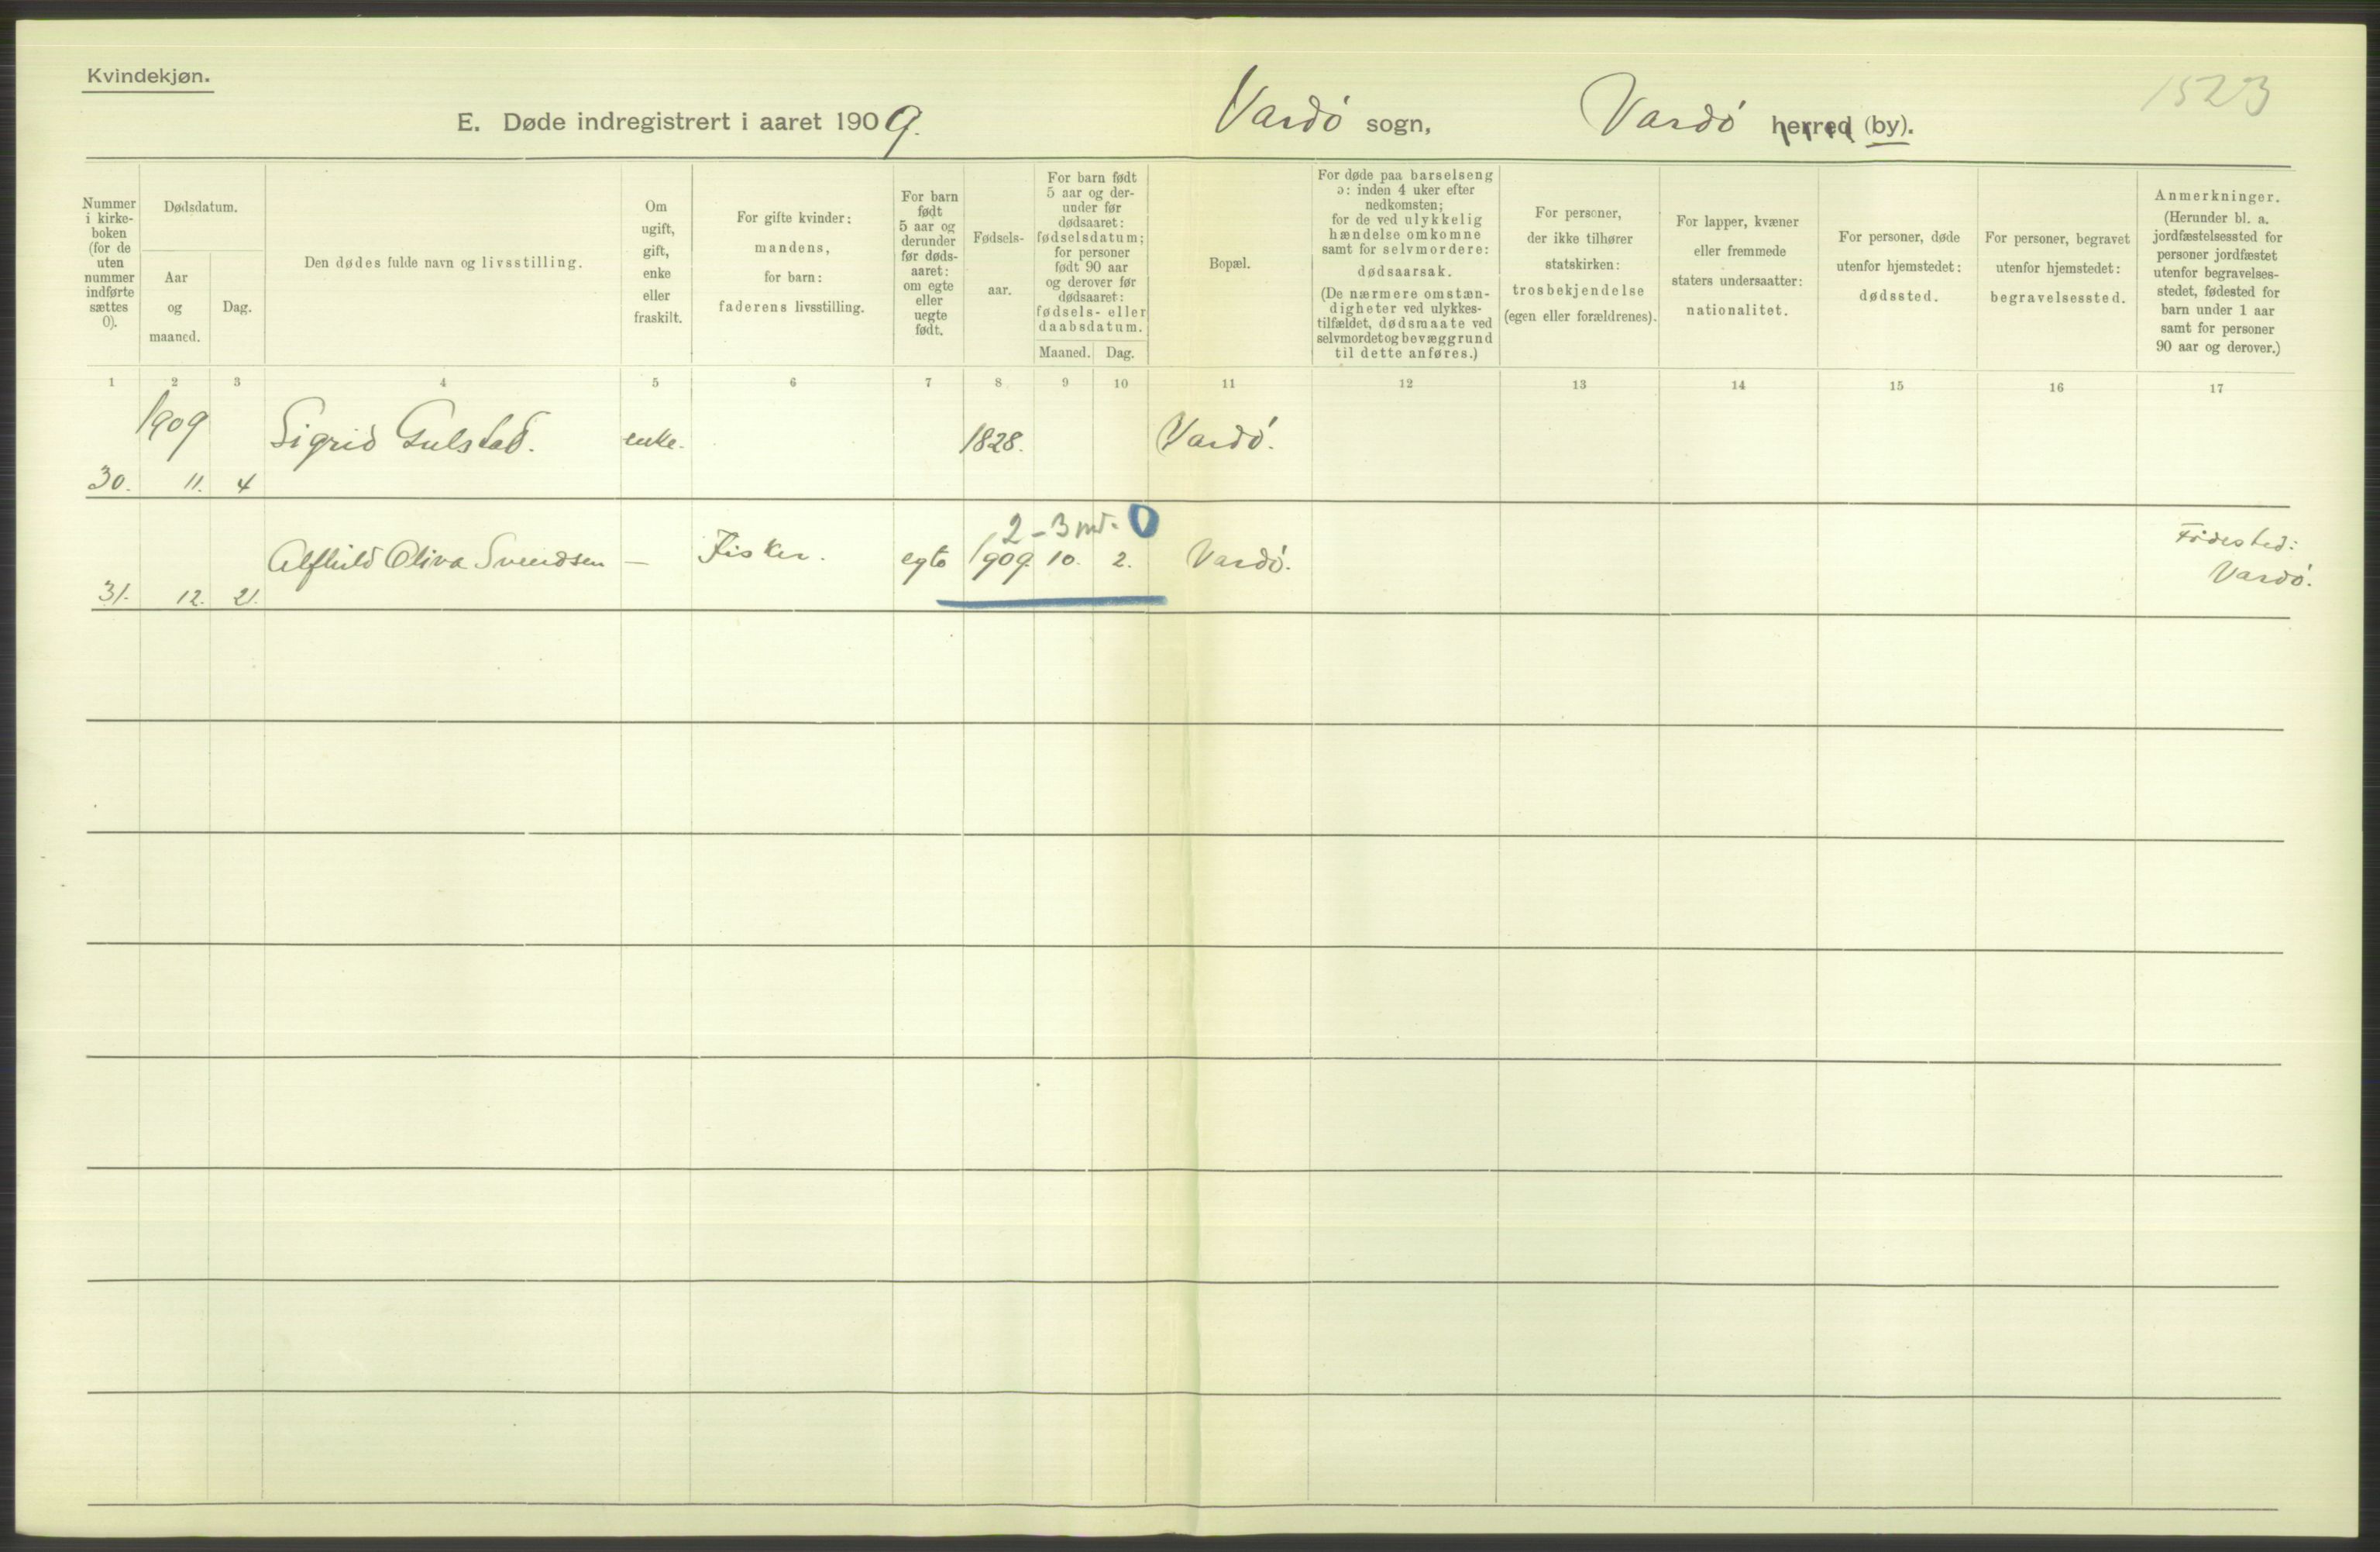 Kvindekjøn.
1523
E. Døde indregistrert i aaret 1909. Vardó sogn, Vardó herred (by).
Nummer
i kirke-
boken
(for de
uten
nummer
indførte
sættes
0).
Dødsdatum.
Aar
og
maaned.
Dag.
Den dødes fulde navn og livsstilling.
Om
ugift,
gift,
enke
eller
fraskilt.
For gifte kvinder:
mandens,
for barn:
faderens livsstilling.
For barn
født
5 aar og
derunder
før døds-
aaret:
om egte
eller
uegte
født.
Fødsels-
aar.
For barn født
5 aar og der-
under før
dødsaaret:
fødselsdatum;
for personer
født 90 aar
og derover før
dødsaaret:
fødsels- eller
daabsdatum.
Maaned. Dag.
Bopæl.
For døde paa barselseng
ɔ: inden 4 uker efter
nedkomsten;
for de ved ulykkelig
hændelse omkomne
samt for selvmordere:
dødsaarsak.
(De nærmere omstæn-
digheter ved ulykkes-
tilfældet, dødsmaate ved
selvmordet og bevæggrund
til dette anføres.)
For personer,
der ikke tilhører
statskirken:
trosbekjendelse
(egen eller forældrenes).
For lapper, kvæner
eller fremmede
staters undersaatter:
nationalitet.
For personer, døde
utenfor hjemstedet:
dødssted.
For personer, begravet
utenfor hjemstedet:
begravelsessted.
Anmerkninger.
(Herunder bl. a.
jordfæstelsessted for
personer jordfæstet
utenfor begravelses-
stedet, fødested for
barn under 1 aar
samt for personer
90 aar og derover.)
1 2 3 4 5 6 7 8 9 10 11 12 13 14 15 16 17
1909
30. 11. 4 Sigrid Gulstad. enke. 1828. Vardó.
2-3 md. 0
31. 12. 21. Alfhild Oliva Svendsen — Fisker. egte 1909. 10. 2. Vardó. Fódested:
Vardó.